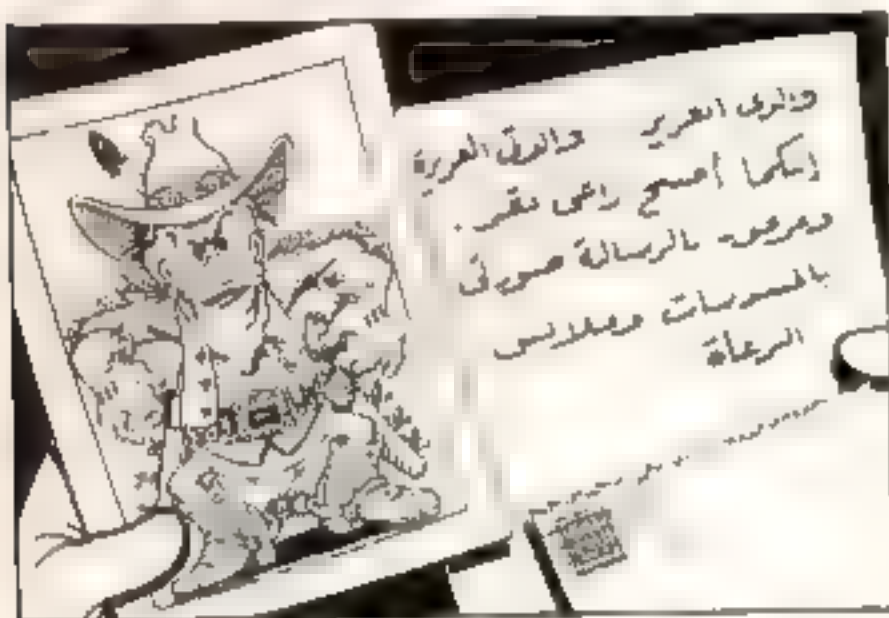 والدى العزيز والدتى العزيزة
إبنكما أصبح راعى بقر.
ومرفق بالرسالة صورتى
بالمسدسات وملابس
الرعاة